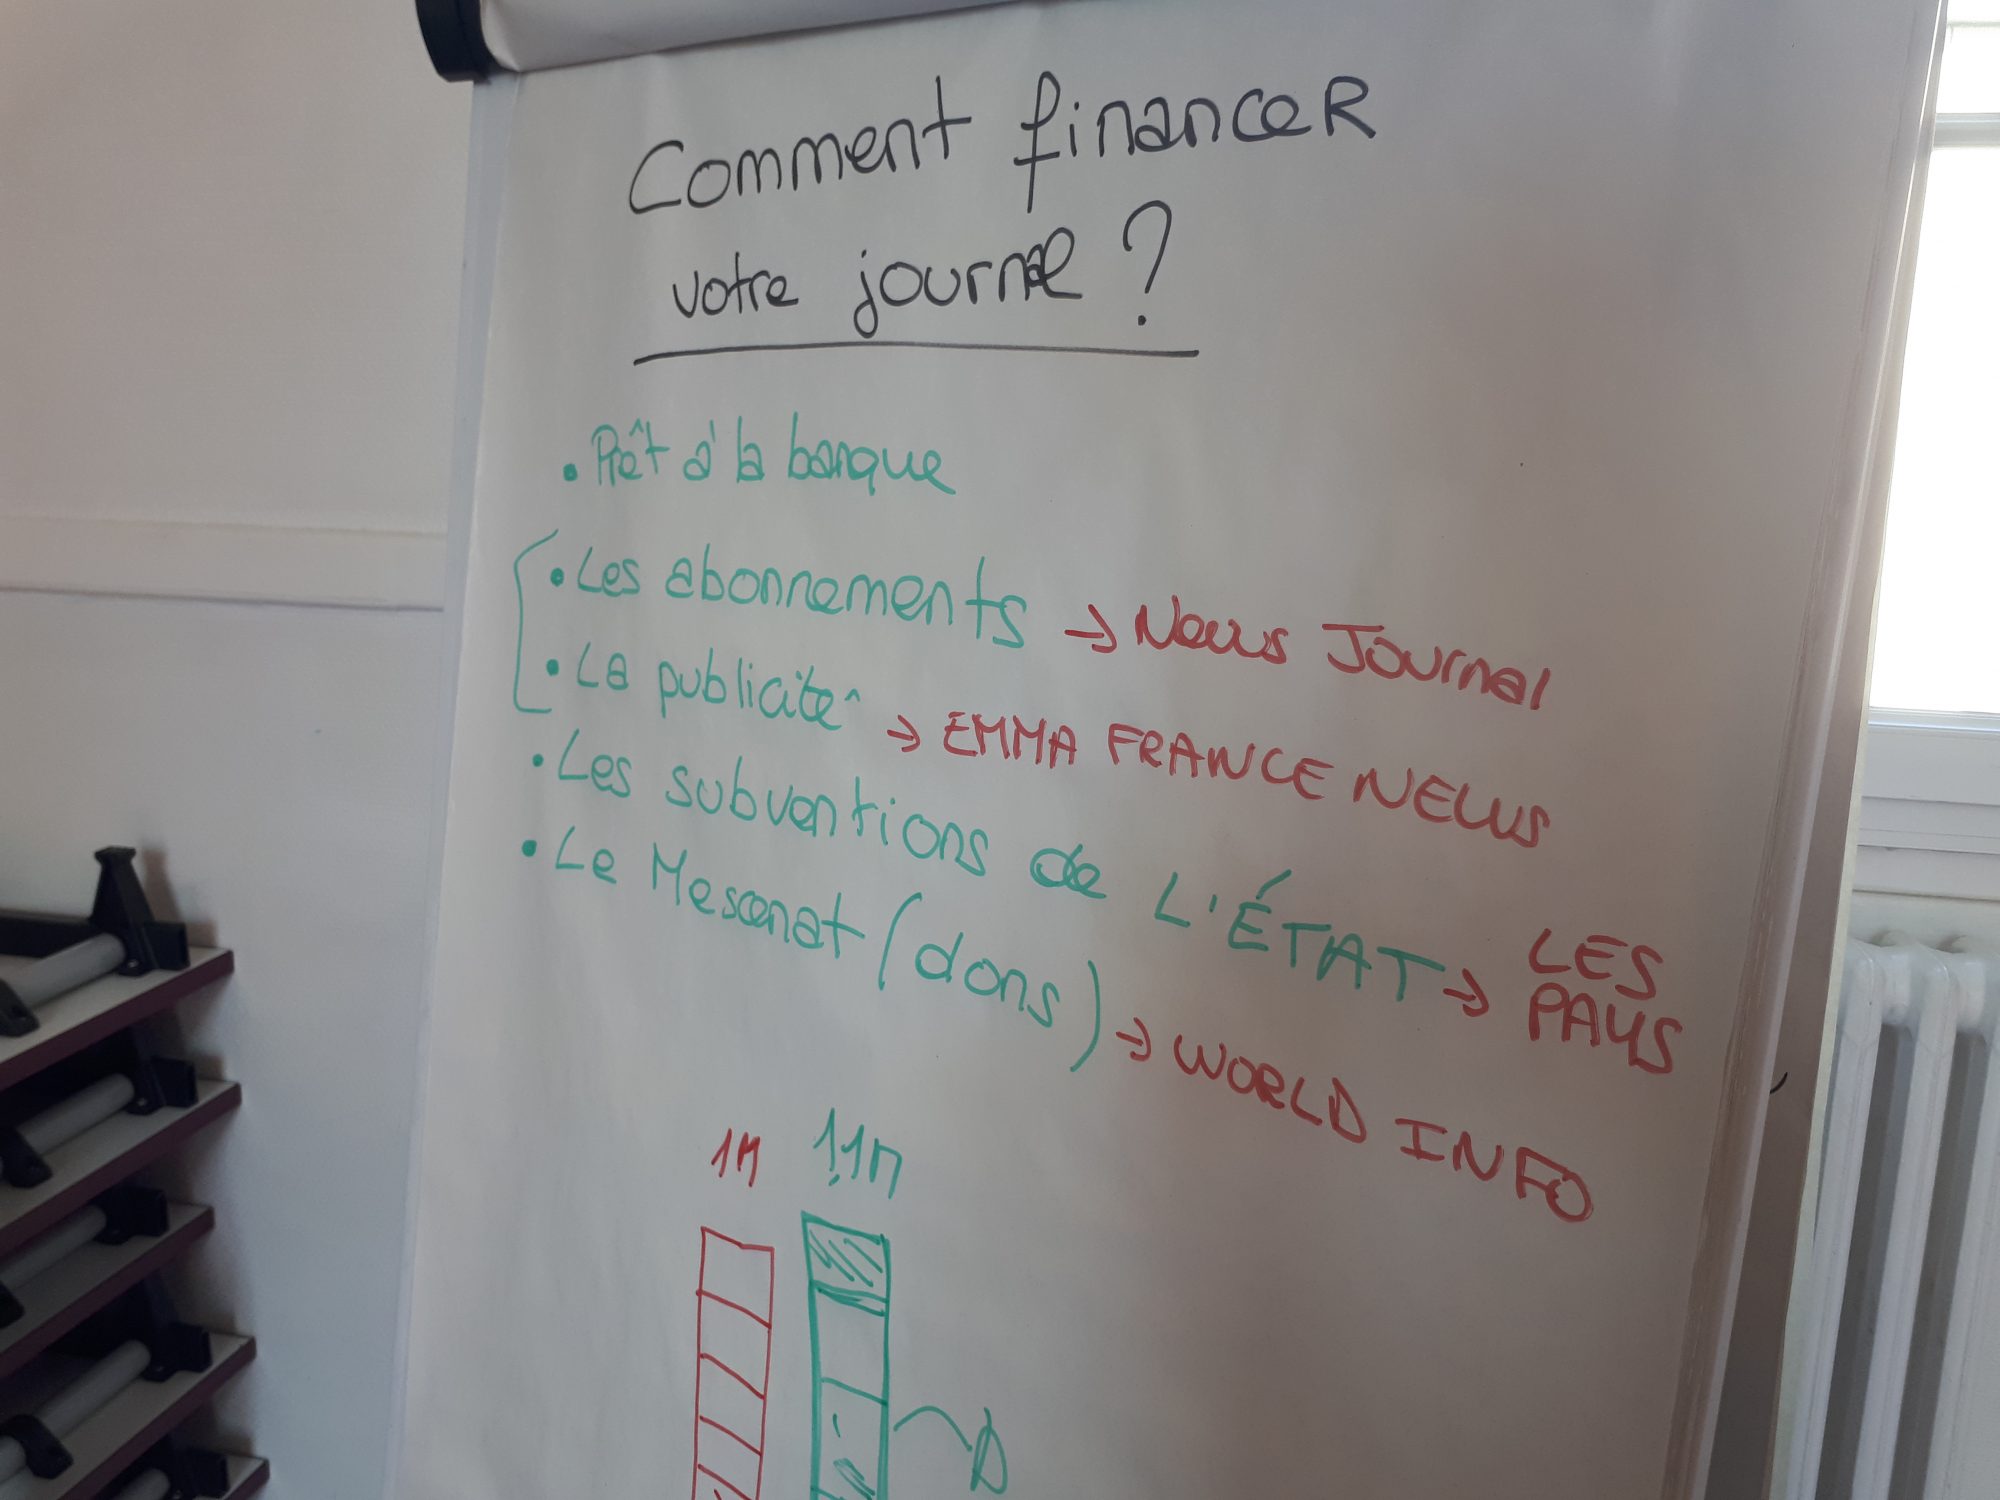 Comment financeR
votre journal ?
• Prêt à la banque
• Les abonnements → News Journal
• La publicité → EMMA FRANCE NEWS
• Les subventions de L'ÉTAT → LES PAYS
• Le Mescenat (dons) → WORLD INFO
1M 1,1M